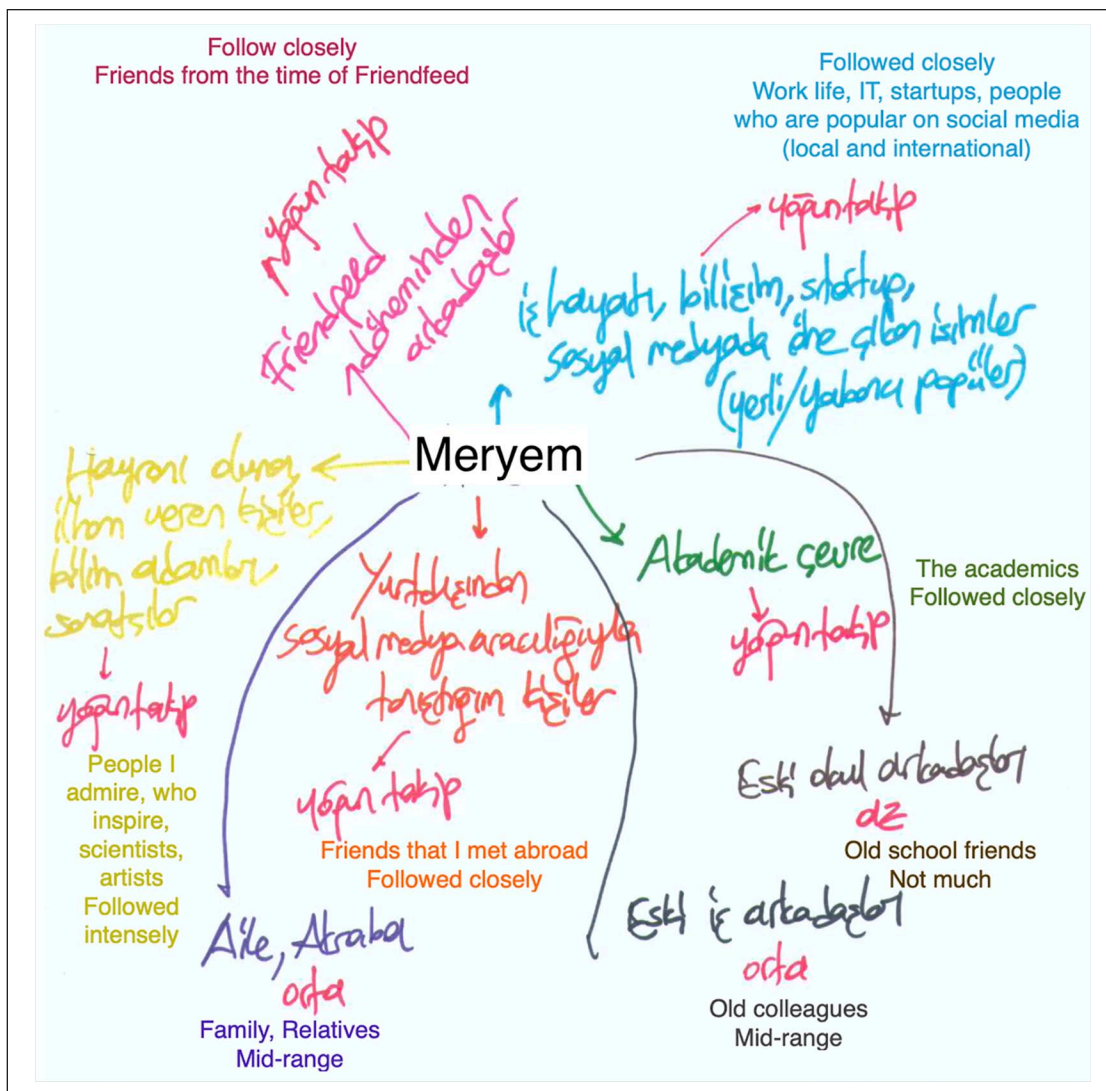 Follow closely
Friends from the time of Friendfeed
Followed closely
Work life, IT, startups, people
who are popular on social media
(local and international)
yoğun takip
Friendfeed
döneminden
arkadaşlar
yoğun takip
iş hayatı, bilişim, startup,
sosyal medyada öne çıkan isimler
(yerli/yabancı popüler)
Meryem
Hayranı olunan,
ilham veren kişiler,
bilim adamları
sanatçılar
yoğun takip
People I
admire, who
inspire,
scientists,
artists
Followed
intensely
Yurtdışından
sosyal medya aracılığıyla
tanıştığım kişiler
yoğun takip
Friends that I met abroad
Followed closely
Akademik çevre
yoğun takip
The academics
Followed closely
Eski okul arkadaşları
az
Old school friends
Not much
Aile, Akraba
orta
Family, Relatives
Mid-range
Eski iş arkadaşları
orta
Old colleagues
Mid-range